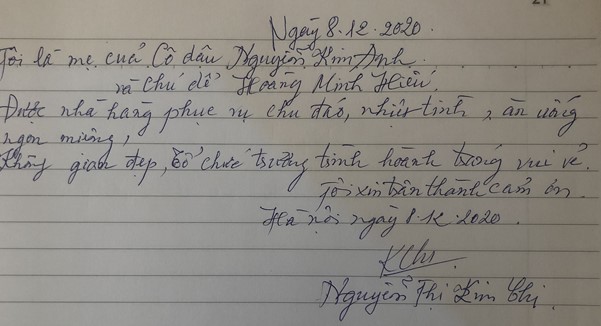 21
Ngày 8.12.2020
Tôi là mẹ cuả Cô dâu Nguyễn Kim Anh.
và Chú dể Hoàng Minh Hiếu.
Được nhà hàng phục vụ chu đáo, nhiệt tình, ăn uống
ngon miệng,
Không gian đẹp, tổ chức trương trình hoành tráng vui vẻ.
Tôi xin trân thành cảm ơn.
Hà nội ngày 8.12.2020.
KChi
Nguyễn Thị Kim Chi.